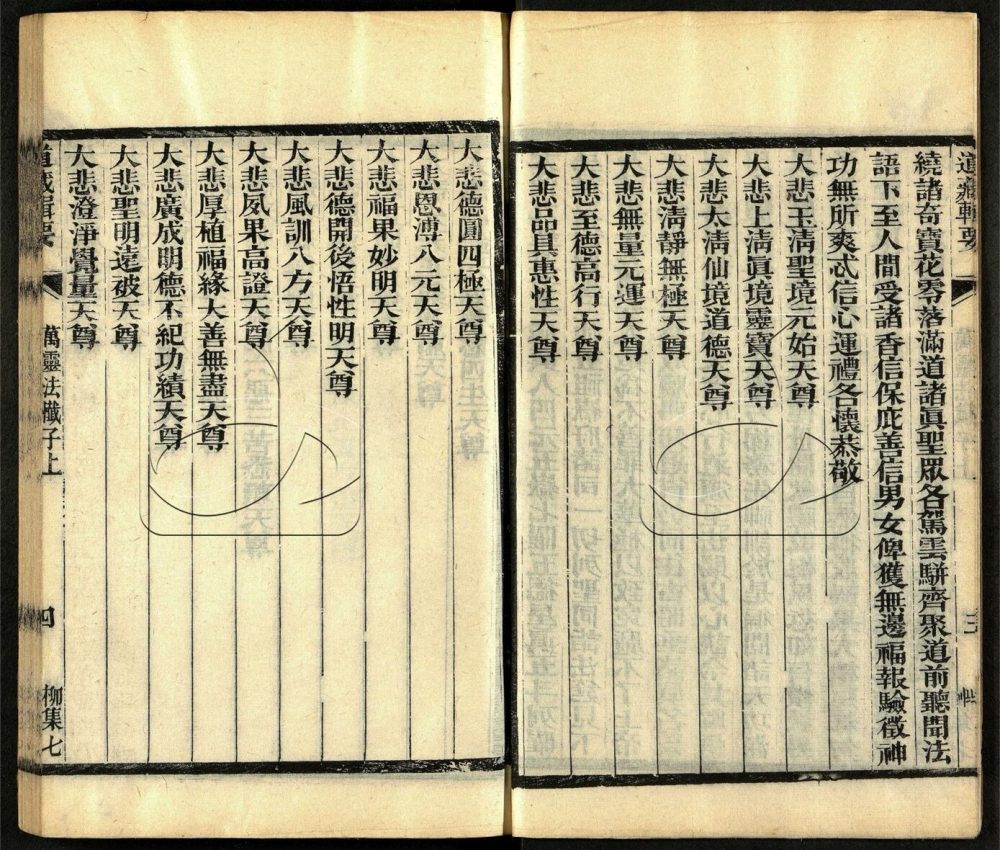 道藏輯要
繞諸奇寶花零落滿道諸眞聖眾各駕雲駢齊聚道前聽聞法
語下至人間受諸香信保庇善信男女俾獲無邊福報驗徵神
功無所爽忒信心運禮各懷恭敬
大悲玉淸聖境元始天尊
大悲上淸眞境靈寶天尊
大悲太淸仙境道德天尊
大悲淸靜無極天尊
大悲無量元運天尊
大悲至德高行天尊
大悲品具惠性天尊
大悲德圓四極天尊
大悲恩溥八元天尊
大悲福果妙明天尊
大悲德開後悟性明天尊
大悲風訓八方天尊
大悲夙果高證天尊
大悲厚植福緣大善無盡天尊
大悲廣成明德不紀功績天尊
大悲聖明遠被天尊
大悲澄淨覺量天尊
道藏輯要 萬靈法懺子上 四 柳集七